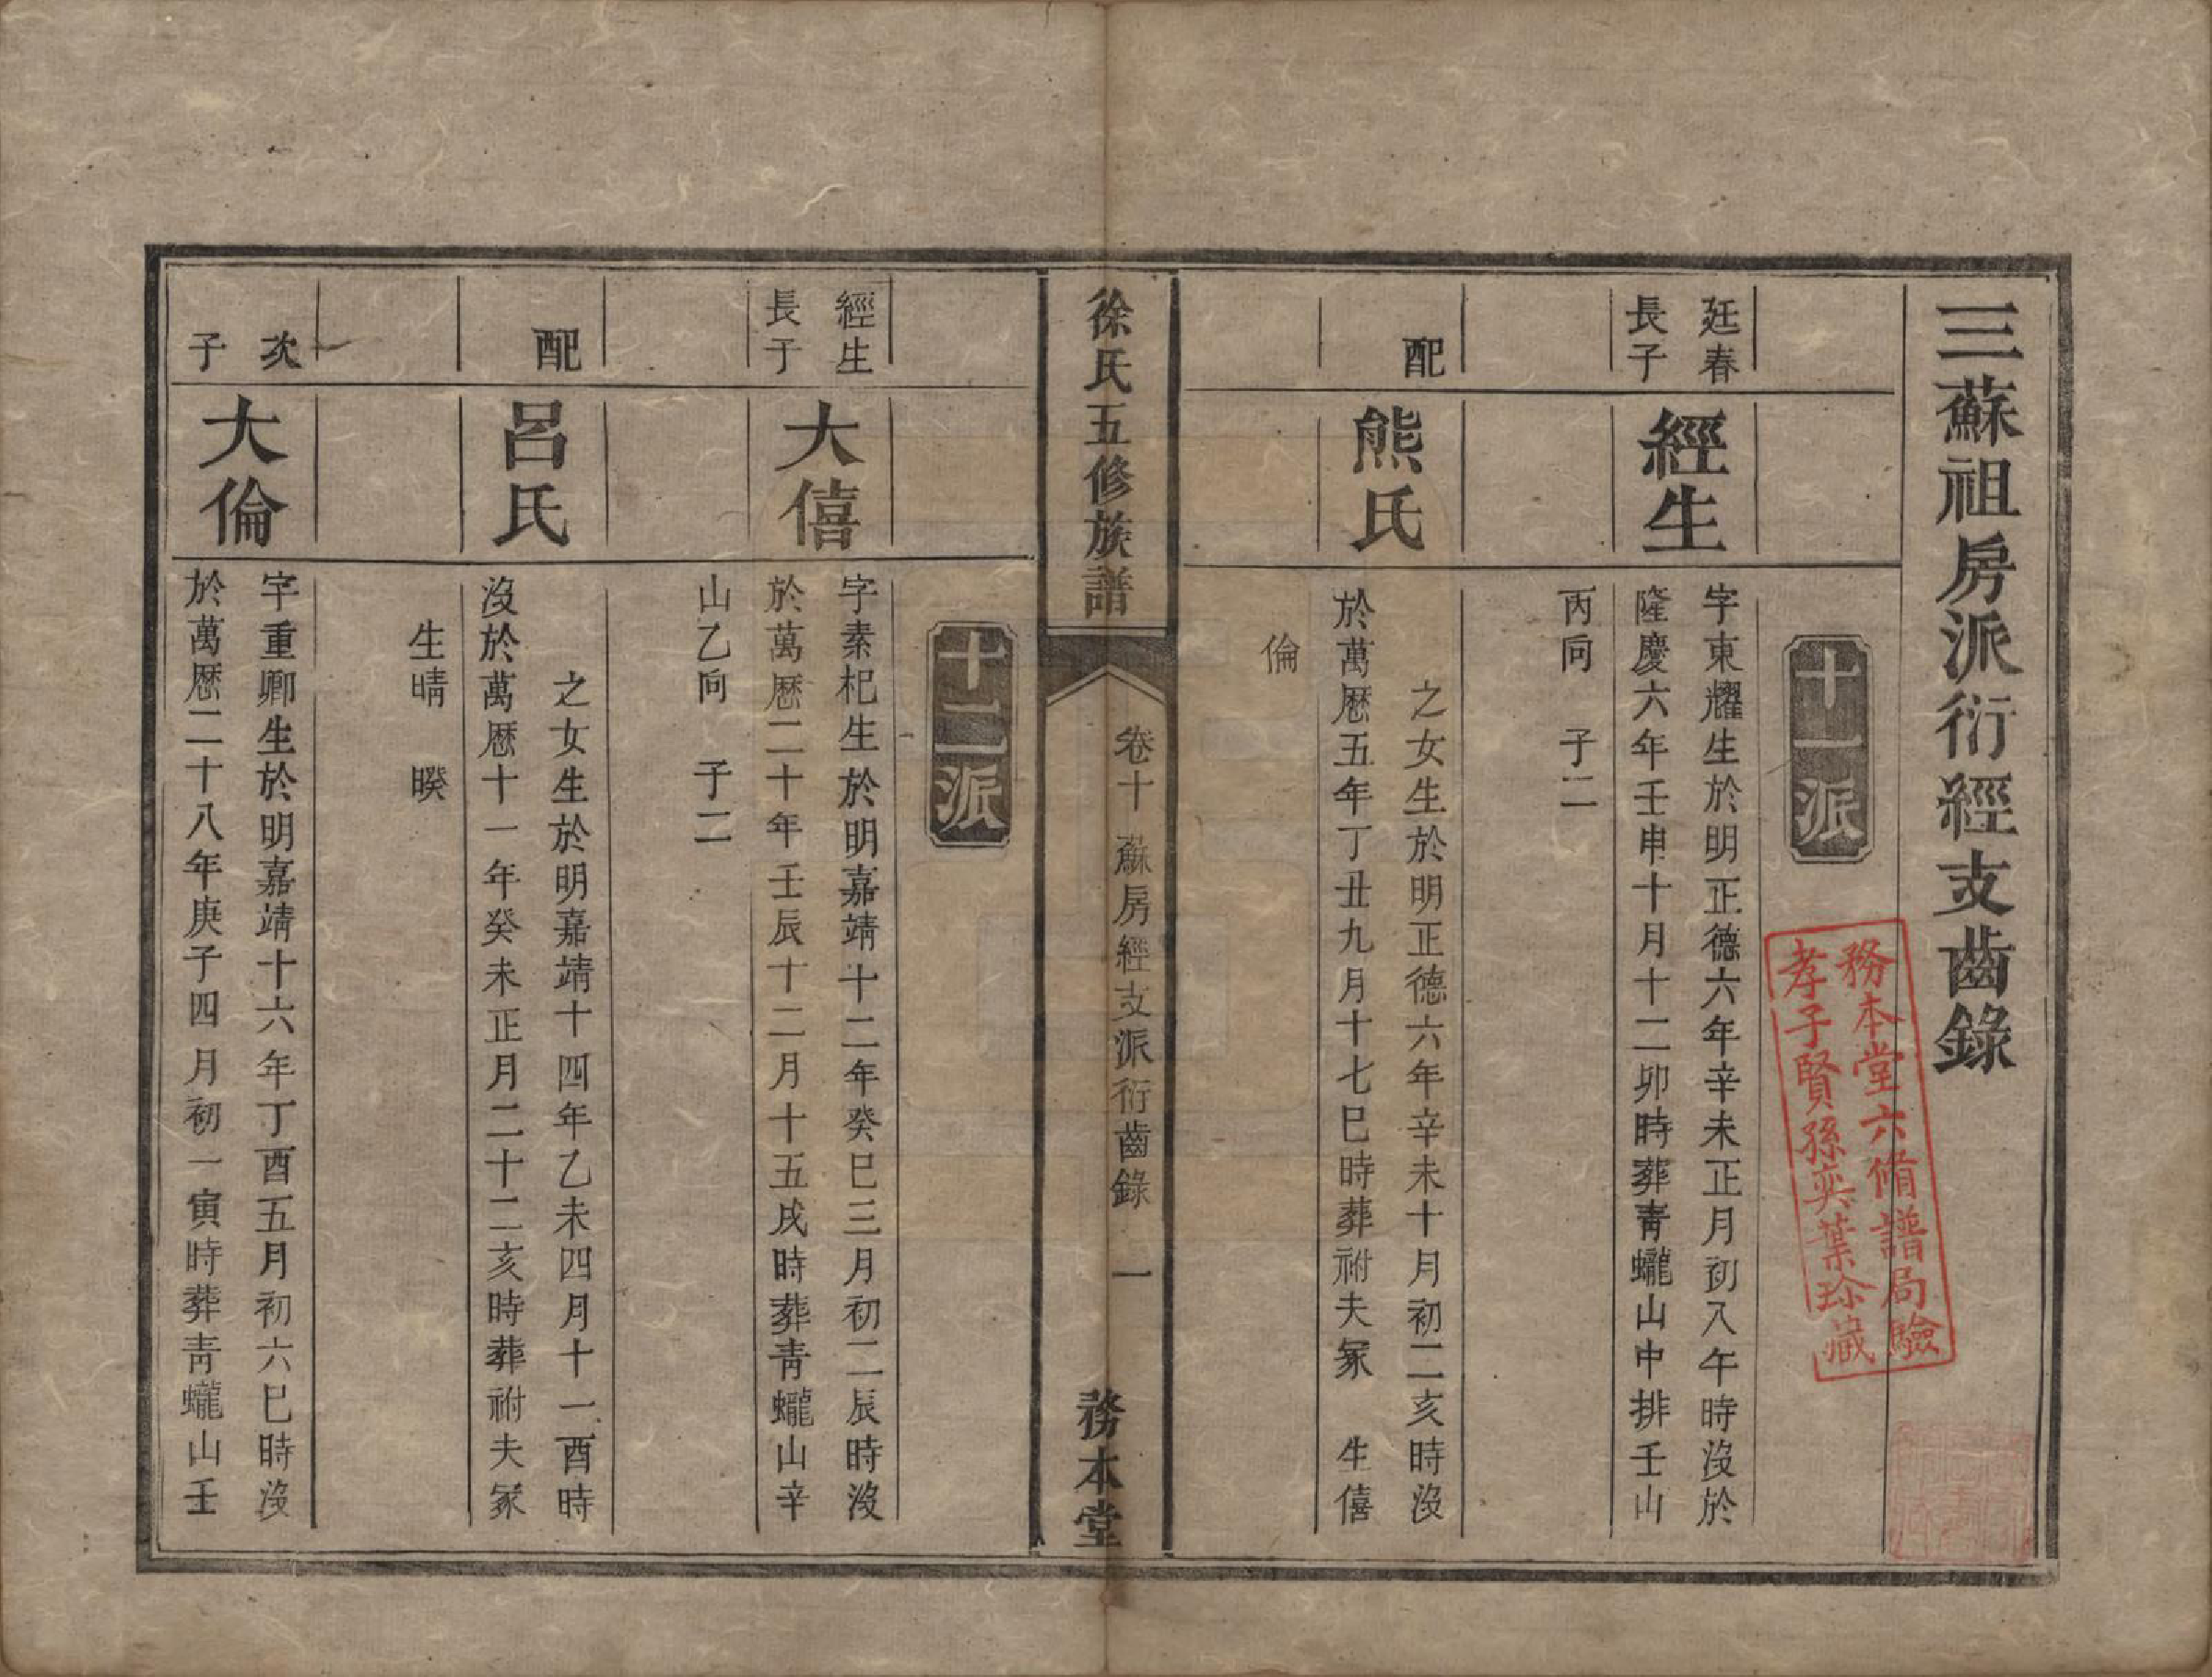 三蘇祖房派衍經支齒錄
務本堂六脩譜局驗
孝子賢孫奕葉珍藏
十一派
廷春
長子
經生
字東耀生於明正德六年辛未正月初八午時沒於
隆慶六年壬申十月十二卯時葬青蠬山中排壬山
丙向 子二
配
熊氏
之女生於明正德六年辛未十月初二亥時沒
於萬厯五年丁丑九月十七巳時葬祔夫冢 生僖
倫
徐氏五修族譜
卷十 蘇房經支派衍齒錄 一
務本堂
十二派
經生
長子
大僖
字素杞生於明嘉靖十二年癸巳三月初二辰時沒
於萬厯二十年壬辰十二月十五戌時葬青蠬山辛
山乙向 子二
配
呂氏
之女生於明嘉靖十四年乙未四月十一酉時
沒於萬厯十一年癸未正月二十二亥時葬祔夫冢
生晴 暌
次
子
大倫
字重卿生於明嘉靖十六年丁酉五月初六巳時沒
於萬厯二十八年庚子四月初一寅時葬青蠬山壬